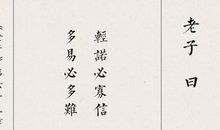 老子曰
輕諾必寡信
多易必多難